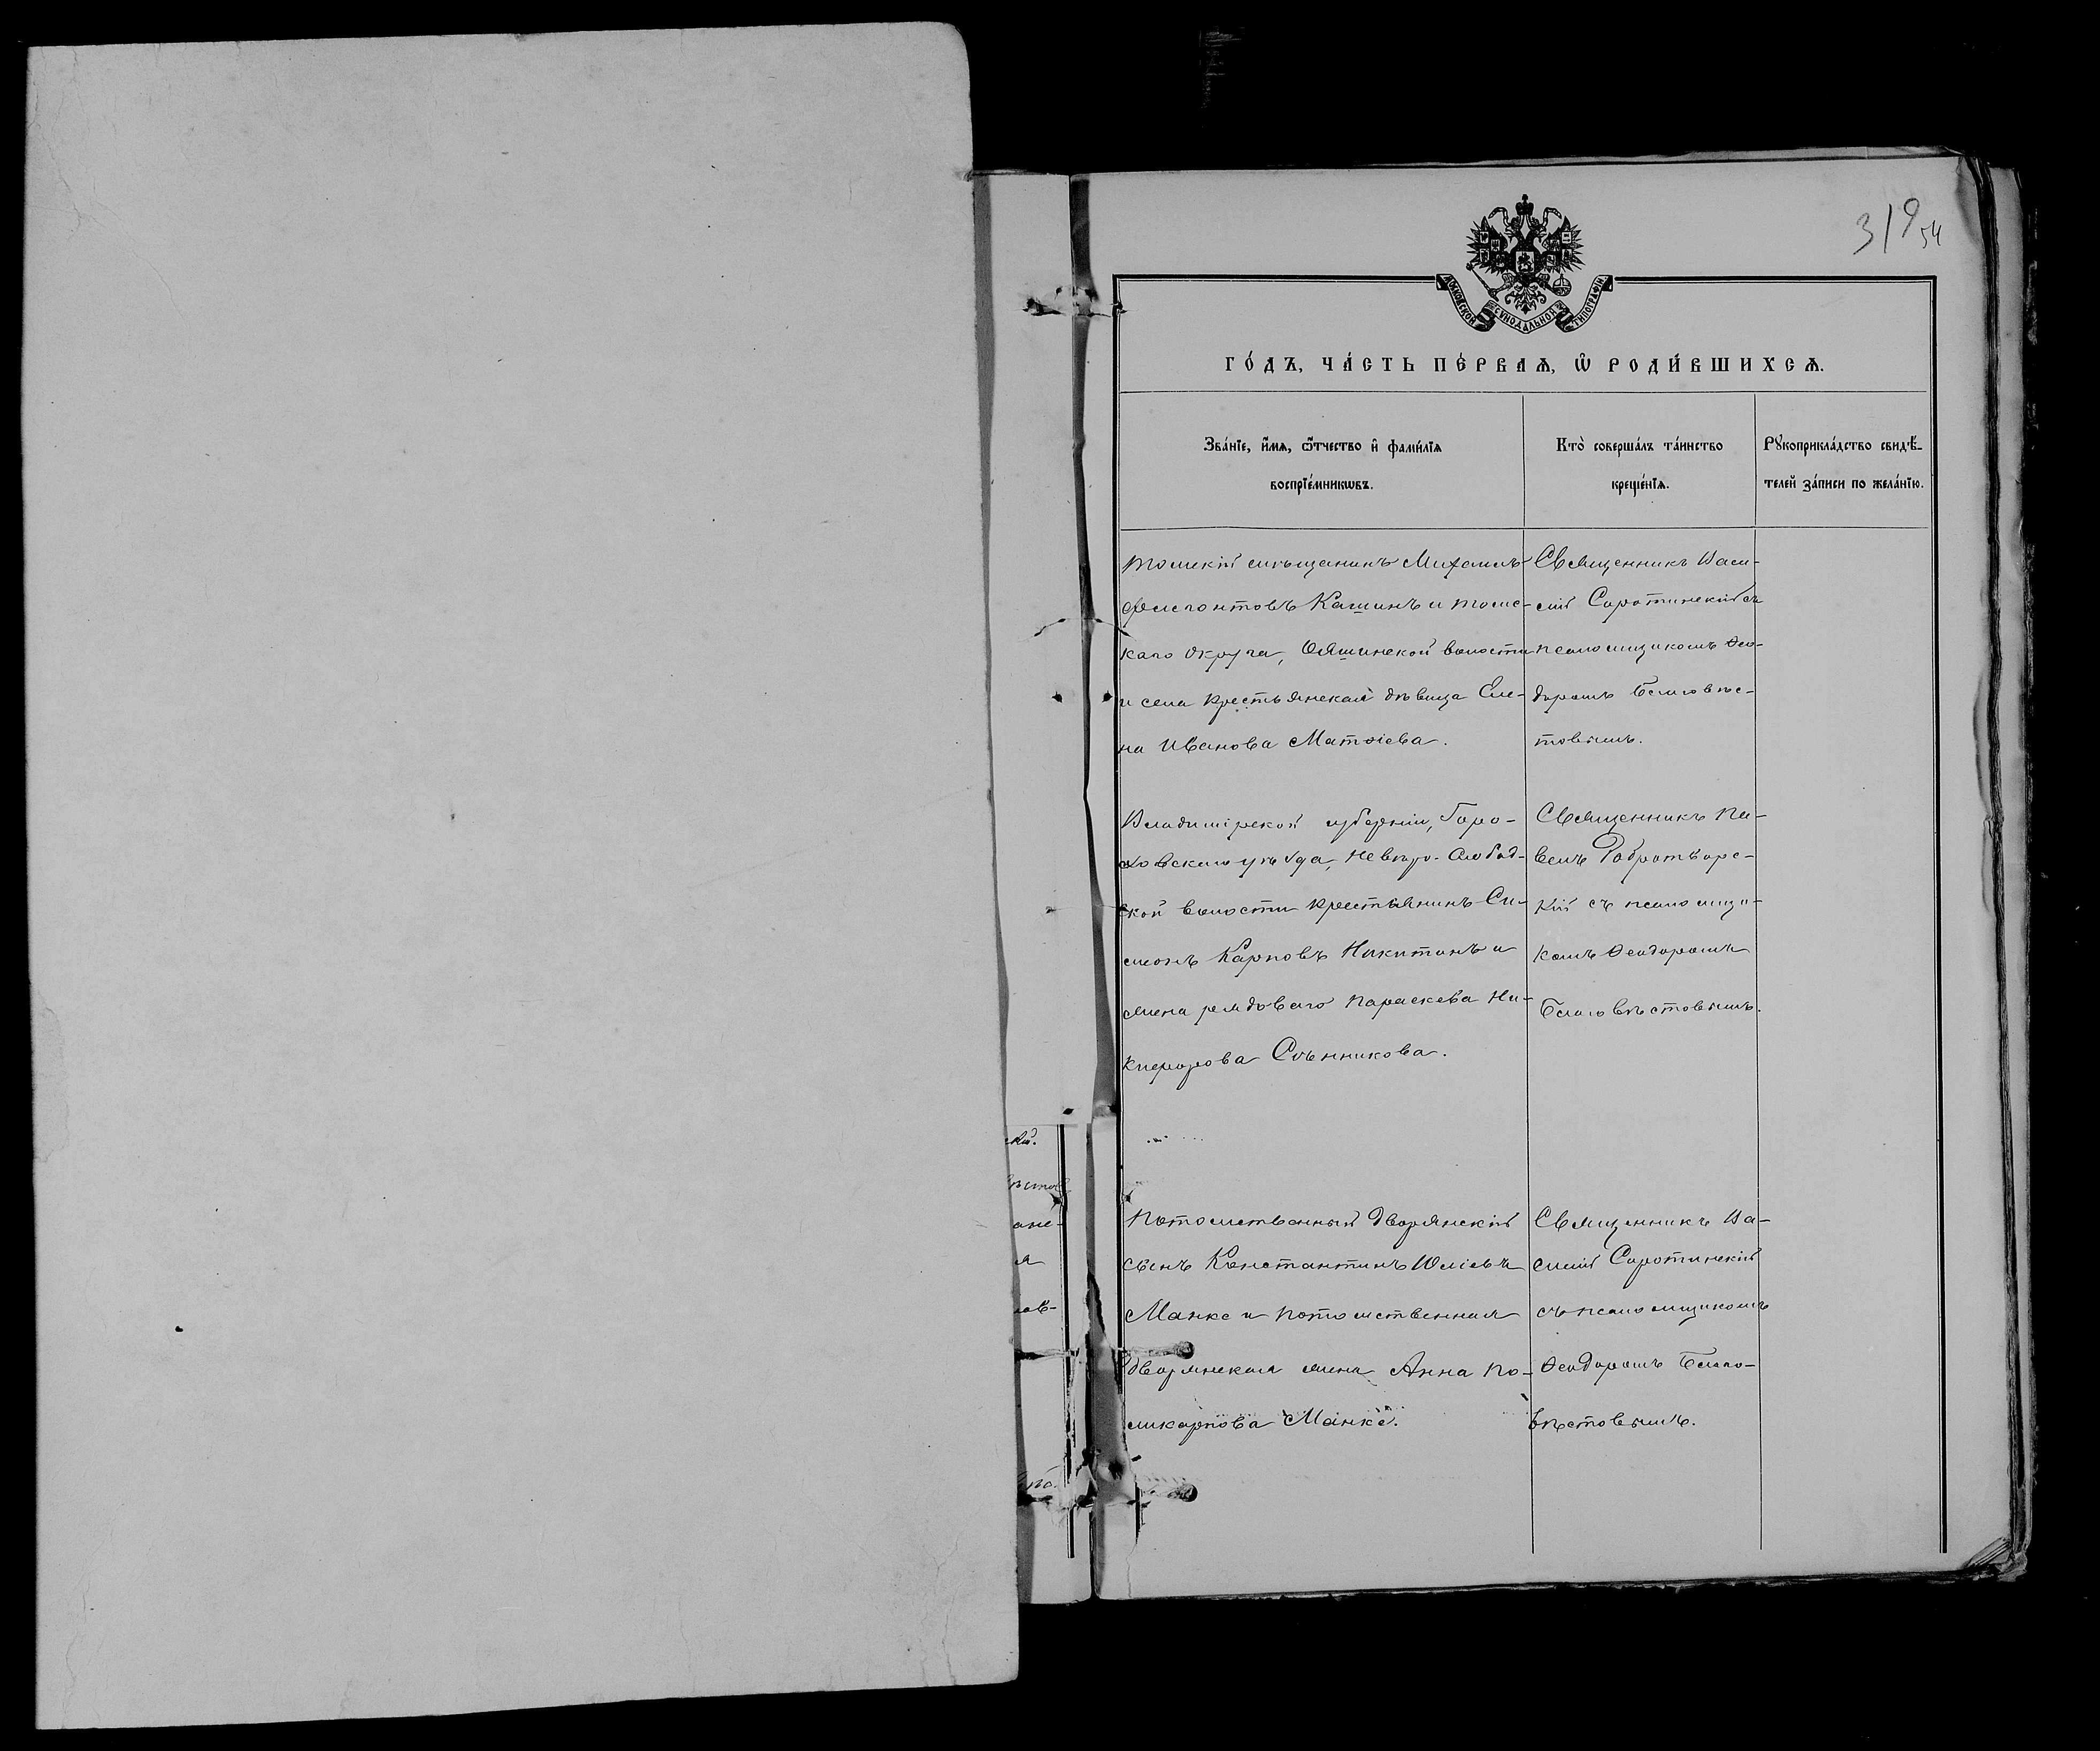 319
54
МОСКОВСКОЙ СѴНОДАЛЬНОЙ ТИПОГРАФІИ
ГО́ДЪ, ЧА́СТЬ ПЕ́РВАѦ, Ѡ҆ РОДИ́ВШИХСѦ.
Зва́нїе, и҆́мѧ, ѻ҆́тчество и҆ фами́лїѧ
воспрїе́мникѡвъ.
Кто̀ соверша́лъ та́инство
креще́нїѧ.
Рꙋкоприкла́дство свидѣ́-
телей за́писи по жела́нїю.
Томскій мѣщанинъ Михаилъ
Филогонтовъ Кашинъ и Томс-
каго округа, Ояшинской волости
и села крестьянская дѣвица Еле-
на Иванова Матѳіева.
Священникъ Васи-
лій Сиротинскій съ
псаломщикомъ Ѳео-
доромъ Благовѣс-
товымъ.
Владимірской губерніи, Горо-
ховскаго уѣзда, Слобод-
ской волости крестьянинъ Си-
меонъ Карповъ Никитинъ и
жена рядоваго Параскева Ни-
кифорова Сѣнникова.
Священникъ Па-
велъ Добротворс-
кій съ псаломщи-
комъ Ѳеодоромъ
Благовѣстовымъ.
Потомственный дворянскій
сынъ Константинъ Юліевъ
Манке и потомственная
дворянская жена Анна По-
ликарпова Манке.
Священникъ Ва-
силій Сиротинскій
съ псаломщикомъ
Ѳеодоромъ Благо-
вѣстовымъ.